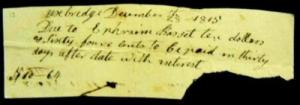 uxbridge December 1815
Due to Ephraim Basset ten dollars
& Sixty four cents to be paid in thirty
days after date with interest
$10-64